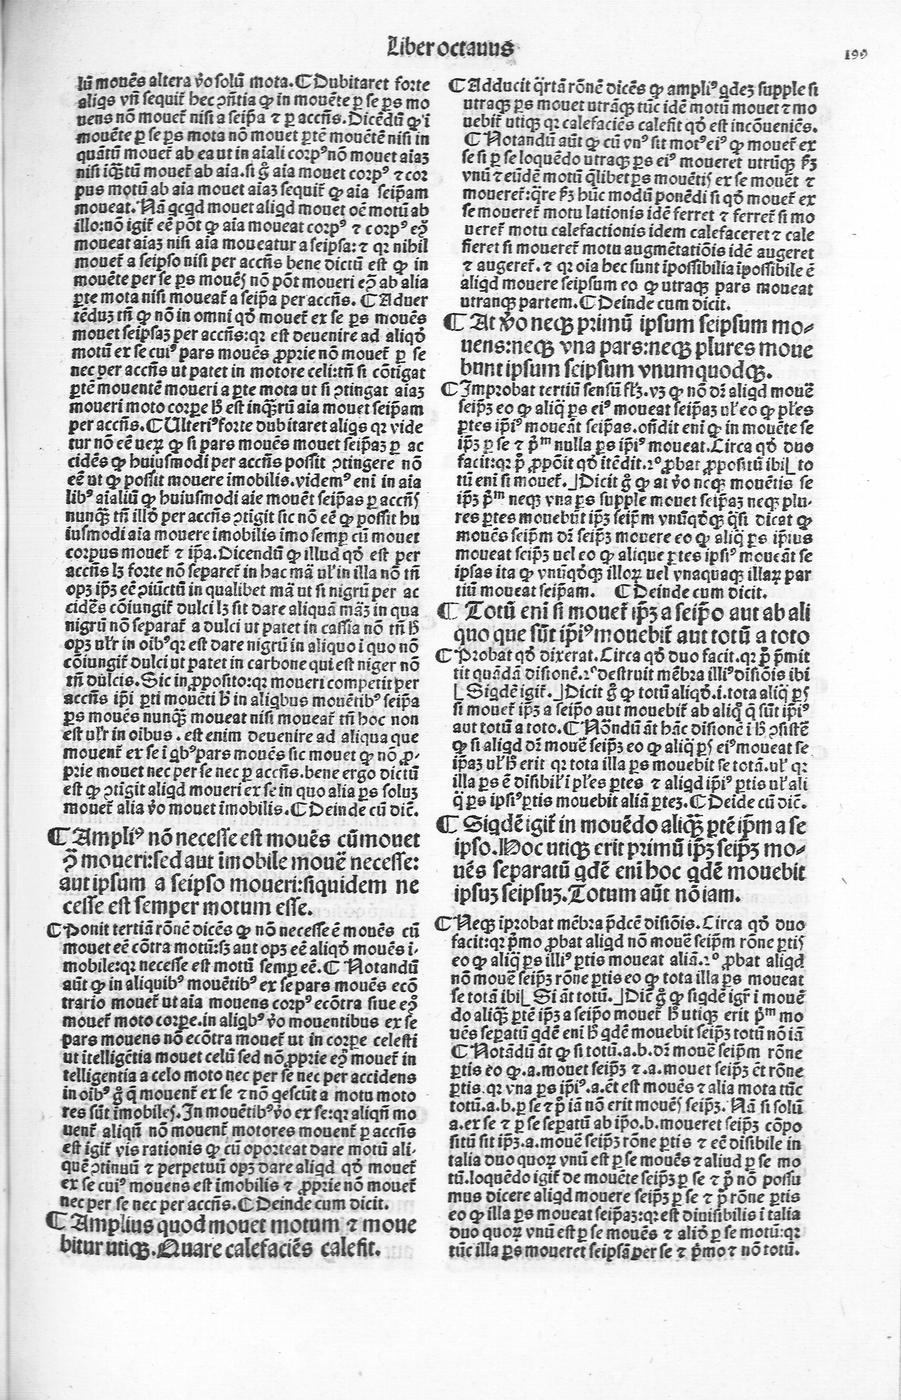 Liber octauus
199
lũ mouẽs altera ꝟo solũ mota. ¶ Dubitaret forte
aliqs vñ sequit᷑ hec ↄñtia ꝙ in mouẽte ꝑ se ꝑs mo
uens nõ mouet᷑ nisi a seip̃a ⁊ ꝑ accñs. Dicẽdũ ꝙ ĩ
mouẽte ꝑ se ꝑs mota nõ mouet ꝑtẽ mouẽtẽ nisi in
quãtũ mouet᷑ ab ea ut in aĩali corpꝰ nõ mouet aĩaz
nisi iqͣ̃tũ mouet᷑ ab aĩa. si g̊ aĩa mouet corpꝰ ⁊ cor
pus motũ ab aĩa mouet aĩaz sequit᷑ ꝙ aĩa seip̃am
moueat. Nã qcqd mouet aliqd mouet oẽ motũ ab
illo: nõ igit᷑ eẽ põt ꝙ aĩa moueat corpꝰ ⁊ corpꝰ eꝯ̃
moueat aĩaz nisi aĩa moueatur a seipsa: ⁊ qꝛ nihil
mouet᷑ a seipso nisi per accñs bene dictũ est ꝙ in
mouẽte per se ꝑs mouẽs nõ põt moueri eꝯ̃ ab alia
ꝑte mota nisi moueat᷑ a seip̃a per accñs. ¶ Aduer
tẽduz tñ ꝙ nõ in omni qd̊ mouet᷑ ex se ꝑs mouẽs
mouet seipsaz per accñs: qꝛ est deuenire ad aliqd̊
motũ ex se cuiꝰ pars mouẽs ꝓprie nõ mouet᷑ ꝑ se
nec per accñs ut patet in motore celi: tñ si cõtigat
ꝑtẽ mouentẽ moueri a ꝑte mota ut si ↄtingat aĩaz
moueri moto corꝑe h̃ est inqͣ̃tũ aĩa mouet seip̃am
per accñs. ¶ Ulteriꝰ forte dubitaret aliqs qꝛ vide
tur nõ eẽ ueꝝ ꝙ si pars mouẽs mouet seip̃az ꝑ ac
cidẽs ꝙ huiusmodi per accñs possit ↄtingere nõ
eẽ ut ꝙ possit mouere imobilis. videmꝰ eni in aĩa
libꝰ aĩaliũ ꝙ huiusmodi aĩe mouẽt seip̃as ꝑ accñs
nunqͣ̃ tñ illd̊ per accñs ↄtigit sic nõ eẽ ꝙ possit hu
iusmodi aĩa mouere imobilis imo semꝑ cũ mouet
corpus mouet᷑ ⁊ ip̃a. Dicendũ ꝙ illud qd̊ est per
accñs lꝫ forte nõ separet᷑ in hac mã ul' in illa nõ tñ
opꝫ ip̃ꝫ eẽ ↄiũctũ in qualibet mã ut si nigrũ per ac
cidẽs cõiungit᷑ dulci lꝫ sit dare aliquã mãꝫ in qua
nigrũ nõ separat᷑ a dulci ut patet in cassia nõ tñ h̃
opꝫ ul'r in oibꝰ qꝛ est dare nigrũ in aliquo i quo nõ
cõiungit᷑ dulci ut patet in carbone qui est niger nõ
tñ dulcis. Sic in ꝓposito: qꝛ moueri competit per
accñs ip̃i ꝑti mouẽti h̃ in aliqbus mouẽtibꝰ seip̃a
ꝑs mouẽs nunqͣ̃ moueat nisi moueat᷑ tñ hoc non
est ul'r in oibus. est enim deuenire ad aliqua que
mouent᷑ ex se i qbꝰ pars mouẽs sic mouet ꝙ nõ ꝓ-
prie mouet nec per se nec ꝑ accñs. bene ergo dictũ
est ꝙ ↄtigit aliqd moueri ex se in quo alia ꝑs soluz
mouet᷑ alia ꝟo mouet ĩmobilis. ¶ Deinde cũ dic̃.
¶ Ampliꝰ nõ necesse est mouẽs cũ mouet
ꝯ̃ moueri: sed aut ĩmobile mouẽ necesse:
aut ipsum a seipso moueri: siquidem ne
cesse est semper motum esse.
¶ Ponit tertiã rõnẽ dicẽs ꝙ nõ necesse ẽ mouẽs cũ
mouet eẽ cõtra motũ: sꝫ aut opꝫ eẽ aliqd̊ mouẽs i-
mobile: qꝛ necesse est motũ semꝑ eẽ. ¶ Notandũ
aũt ꝙ in aliquibꝰ mouẽtibꝰ ex se pars mouẽs ecõ
trario mouet᷑ ut aĩa mouens corpꝰ ecõtra siue eꝯ̃
mouet᷑ moto corꝑe. in aliqbꝰ ꝟo mouentibus ex se
pars mouens nõ ecõtra mouet᷑ ut in corꝑe celesti
ut itelligẽtia mouet celũ sed nõ ꝓprie eꝯ̃ mouet᷑ in
telligentia a celo moto nec per se nec per accidens
in oibꝰ g̊ q̃ mouent᷑ ex se ⁊ nõ qescũt a motu moto
res sũt ĩmobiles. In mouẽtibꝰ ꝟo ex se: qꝛ aliqñ mo
uent᷑ aliqñ nõ mouent᷑ motores mouent᷑ ꝑ accñs
est igit᷑ vis rationis ꝙ cũ oporteat dare motũ ali-
quẽ ↄtinuũ ⁊ perpetuũ opꝫ dare aliqd qd̊ mouet᷑
ex se cuiꝰ mouens est imobilis ⁊ ꝓprie nõ mouet᷑
nec per se nec per accñs. ¶ Deinde cum dicit.
¶ Amplius quod mouet motum ⁊ moue
bitur utiqꝫ. Quare calefaciẽs calefit.
¶ Adducit q̈rtã rõnẽ dicẽs ꝙ ampliꝰ qdeꝫ supple si
utraqꝫ ꝑs mouet utrãqꝫ tũc idẽ motũ mouet ⁊ mo
uebit᷑ utiqꝫ qꝛ calefaciẽs calefit qd̊ est incõueniẽs.
¶ Notandũ aũt ꝙ cũ vnꝰ sit motꝰ eiꝰ ꝙ mouet᷑ ex
se si ꝑ se loquẽdo utraqꝫ ꝑs eiꝰ moueret utrũqꝫ ẜꝫ
vnũ ⁊ eũdẽ motũ q̃libet ꝑs mouẽtis ex se mouẽt ⁊
moueret᷑: q̈re ẜꝫ hũc modũ ponẽdi si qd̊ mouet᷑ ex
se moueret᷑ motu lationis idẽ ferret ⁊ ferret᷑ si mo
ueret᷑ motu calefactionis idem calefaceret ⁊ cale
fieret si moueret᷑ motu augmẽtatiõis idẽ augeret
⁊ augeret᷑. ⁊ qꝛ oĩa hec sunt ĩpossibilia ĩpossibile ẽ
aliqd mouere seipsum eo ꝙ utraqꝫ pars moueat
utranqꝫ partem. ¶ Deinde cum dicit.
¶ At ꝟo neqꝫ primũ ipsum seipsum mo-
uens: neqꝫ vna pars: neqꝫ plures moue
bunt ipsum seipsum vnumquodqꝫ.
¶ Improbat tertiũ sensũ sꝫ. vꝫ ꝙ nõ dꝛ̃ aliqd mouẽ
seip̃ꝫ eo ꝙ aliq̃ ꝑs eiꝰ moueat seip̃aꝫ ul' eo ꝙ pl'es
ꝑtes ip̃iꝰ moueãt seip̃as. oñdit eni ꝙ in mouẽte se
ip̃ꝫ ꝑ se ⁊ p̃ᵐ nulla ꝑs ip̃iꝰ moueat. Circa qd̊ duo
facit: qꝛ p̃ ꝓpõit qd̊ itẽdit. 2º ꝓbat ꝓpositũ ibi ⌊ to
tũ eni si mouet᷑. ⌋ Dicit g̊ ꝙ at ꝟo neqꝫ mouẽtis se
ip̃ꝫ p̃ᵐ neqꝫ vna ꝑs supple mouet seip̃aꝫ neqꝫ plu-
res ꝑtes mouebũt ip̃ꝫ seip̃m vnũqd̊qꝫ q̃si dicat ꝙ
mouẽs seip̃m dꝛ̃ seip̃ꝫ mouere eo ꝙ aliq̃ ꝑs ip̃ius
moueat seip̃ꝫ uel eo ꝙ alique ꝑtes ipsiꝰ moueãt se
ipsas ita ꝙ vnũqd̊qꝫ illoꝝ uel vnaquaqꝫ illaꝝ par
tium moueat seip̃am. ¶ Deinde cum dicit.
¶ Totũ eni si mouet᷑ ip̃ꝫ a seip̃o aut ab ali
quo que sũt ip̃iꝰ mouebit᷑ aut totũ a toto
¶ Probat qd̊ dixerat. Circa qd̊ duo facit. qꝛ p̃ p̃mit
tit quãdã disionẽ. 2º destruit mẽbra illiꝰ disiõis ibi
⌊ Siqdẽ igit᷑. ⌋ Dicit g̊ ꝙ totũ aliqd̊. i. tota aliq̃ ꝑs
si mouet᷑ ip̃ꝫ a seip̃o aut mouebit᷑ ab aliq̃ q̃ sũt ip̃iꝰ
aut totũ a toto. ¶ Nõndũ ãt hãc disionẽ i h̃ ↄsistẽ
ꝙ si aliqd dꝛ̃ mouẽ seip̃ꝫ eo ꝙ aliq̃ ꝑs eiꝰ moueat se
ip̃aꝫ ul' h̃ erit qꝛ tota illa ꝑs mouebit se totã. ul' qꝛ
illa ꝑs ẽ disibil' i pl'es ꝑtes ⁊ aliqd ip̃iꝰ ꝑtis ul' ali
q̃ ꝑs ipsiꝰ ꝑtis mouebit aliã ꝑteꝫ. ¶ Deĩde cũ dic̃.
¶ Siqdẽ igit᷑ in mouẽdo aliqͣ̃ ꝑtẽ ip̃m a se
ipso. Hoc utiqꝫ erit primũ ip̃ꝫ seip̃ꝫ mo-
uẽs separatũ qdẽ eni hoc qdẽ mouebit
ipsuꝫ seipsuꝫ. Totum aũt nõ iam.
¶ Neqꝫ ip̃robat mẽbra p̃dcẽ disiõis. Circa qd̊ duo
facit: qꝛ p̃mo ꝓbat aliqd nõ mouẽ seip̃m rõne ꝑtis
eo ꝙ aliq̃ ꝑs illiꝰ ꝑtis moueat aliã. 2º ꝓbat aliqd
nõ mouẽ seip̃ꝫ rõne ꝑtis eo ꝙ tota illa ꝑs moueat
se totã ibi ⌊ Si ãt totũ. ⌋ Dic̃ g̊ ꝙ siqdẽ igr̃ i mouẽ
do aliqͣ̃ ꝑtẽ ip̃ꝫ a seip̃o mouet᷑ h̃ utiqꝫ erit p̃ᵐ mo
uẽs seꝑatũ qdẽ eni h̃ qdẽ mouebit seip̃ꝫ totũ nõ iã
¶ Notãdũ ãt ꝙ si totũ .a.b. dꝛ̃ mouẽ seip̃m rõne
ꝑtis eo ꝙ .a. mouet seip̃ꝫ ⁊ .a. mouet seip̃ꝫ ẽt rõne
ꝑtis. qꝛ vna ꝑs ip̃iꝰ .a. ẽt est mouẽs ⁊ alia mota tũc
totũ .a.b. ꝑ se ⁊ p̃ iã nõ erit mouẽs seip̃ꝫ. Nã si solũ
.a. ex se ⁊ ꝑ se seꝑatũ ab ip̃o .b. moueret seip̃ꝫ cõpo
sitũ sit ip̃ꝫ .a. mouẽ seip̃ꝫ rõne ꝑtis ⁊ eẽ disibile in
talia duo quoꝝ vnũ est ꝑ se mouẽs ⁊ aliud ꝑ se mo
tũ. loquẽdo igit᷑ de mouẽte seip̃ꝫ ꝑ se ⁊ p̃ nõ possu
mus dicere aliqd mouere seip̃ꝫ ꝑ se ⁊ p̃ rõne ꝑtis
eo ꝙ illa ꝑs moueat seip̃aꝫ: qꝛ est diuisibilis i talia
duo quoꝝ vnũ est ꝑ se mouẽs ⁊ aliud̊ ꝑ se motũ: qꝛ
tũc illa ꝑs moueret seipsã per se ⁊ p̃mo ⁊ nõ totũ.